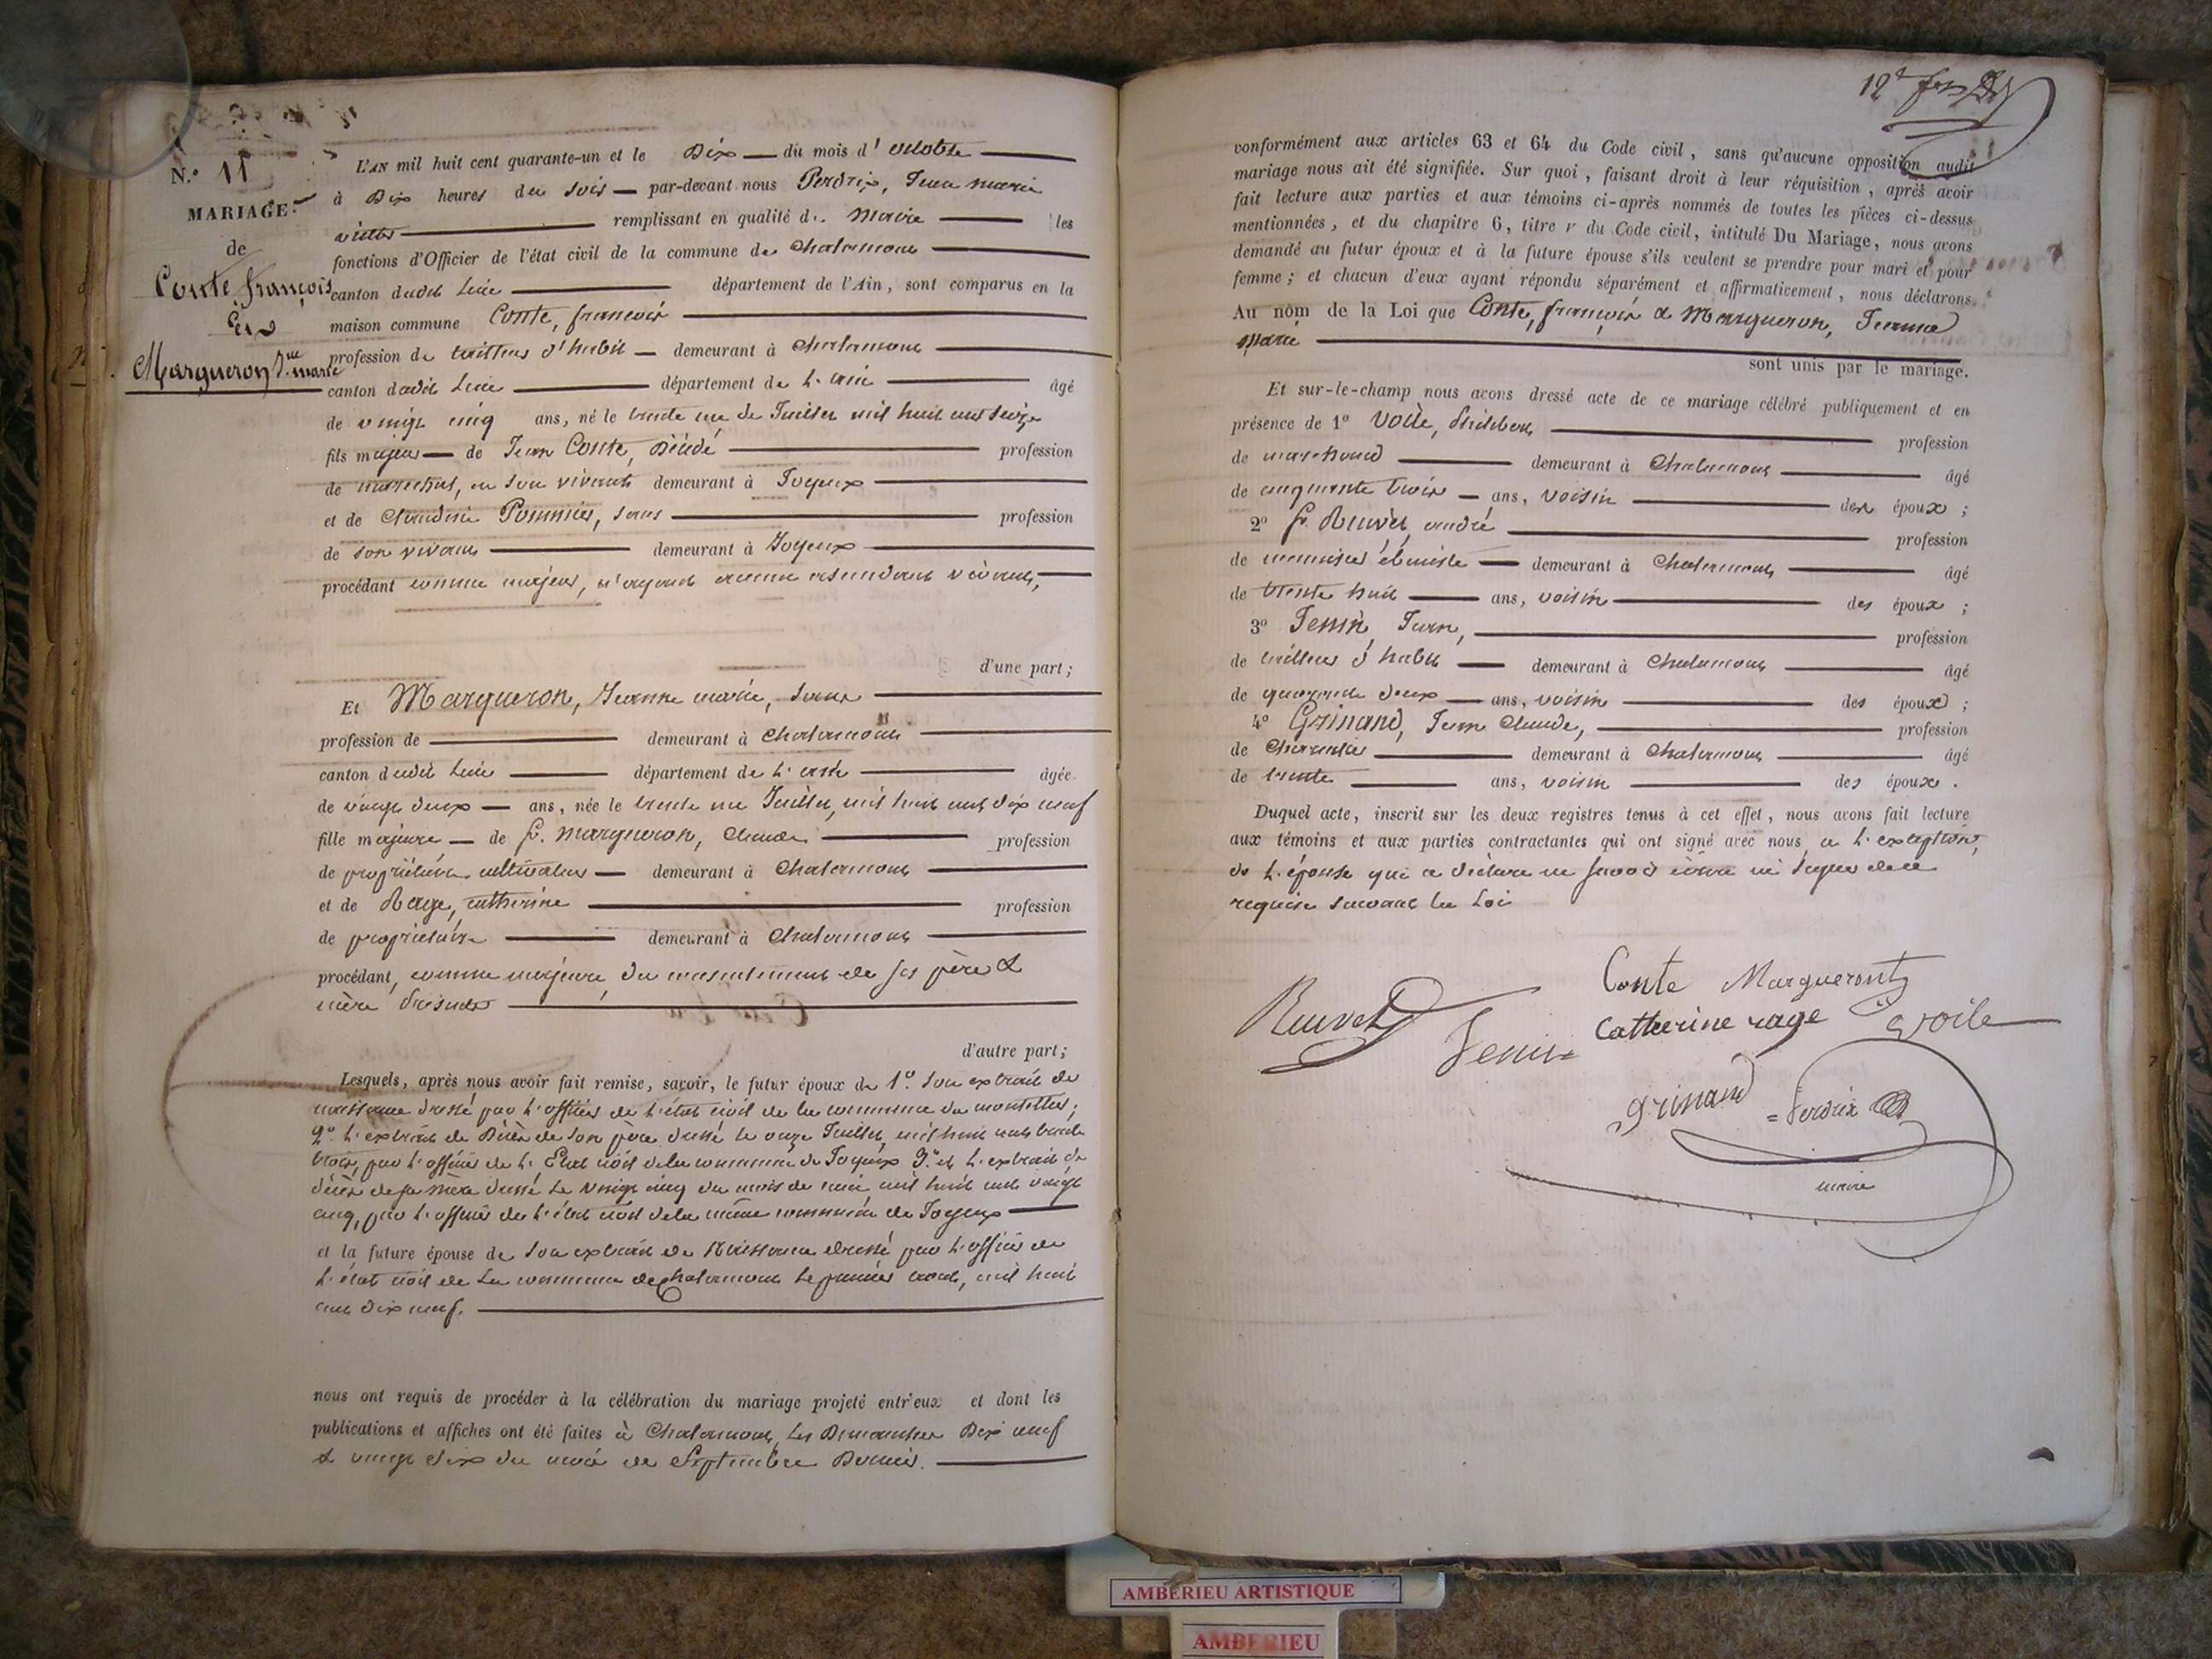 N.º 11
MARIAGE
de
Conte françois
Et
Margueron J.ne marie
L'AN mil huit cent quarante-un et le Dix du mois d'octobre
à Dix heures du soir par-devant nous Perdrix, Jean marie
victor remplissant en qualité de maire les
fonctions d'Officier de l'état civil de la commune de Chalamont
canton dudit Lieu département de l'Ain, sont comparus en la
maison commune Conte, françois
profession de tailleur d'habit demeurant à Chalamont
canton dudit Lieu département de L'ain âgé
de vingt cinq ans, né le trente un de Juillet mil huit cent seize
fils majeur de Jean Conte, Décédé profession
de marechal, en son vivant demeurant à Joyeux
et de Claudine Pommier, sans profession
de son vivant demeurant à Joyeux
procédant comme majeur, n'ayant aucun asendant vivant,
d'une part;
Et Margueron, Jeanne marie, sans
profession de demeurant à Chalamont
canton dudit Lieu département de L'ain âgée
de vingt deux ans, née le trente un Juillet, mil huit cent dix neuf
fille majeure de f. margueron, Claude profession
de propriétaire cultivateur demeurant à Chalamont
et de Rage, catherine profession
de propriétaire demeurant à Chalamont
procédant, comme majeure, du consentement de ses père &
mère présents
d'autre part;
Lesquels, après nous avoir fait remise, savoir, le futur époux de 1.º son extrait de
naissance dressé par L'officier de L'état civil de la commune du montellier;
2.º L'extrait de Décès de son père dressé le onze Juillet, mil huit cent trente
trois, par L'officier de L'Etat civil de la commune de Joyeux 3.º et L'extrait de
décès de sa mère dressé Le vingt cinq du mois de mai mil huit cent vingt
cinq, par L'officier de L'état civil de la même commune de Joyeux
et la future épouse de son extrait de Naissance dressé par L'officier de
L'état civil de La commune de Chalamont Le premier août, mil huit
cent dix neuf.
nous ont requis de procéder à la célébration du mariage projeté entr'eux et dont les
publications et affiches ont été faites à Chalamont, Les Dimanches Dix neuf
& vingt six du mois de Septembre Dernier.
conformément aux articles 63 et 64 du Code civil, sans qu'aucune opposition audit
mariage nous ait été signifiée. Sur quoi, faisant droit à leur réquisition, après avoir
fait lecture aux parties et aux témoins ci-après nommés de toutes les pièces ci-dessus
mentionnées, et du chapitre 6, titre v du Code civil, intitulé Du Mariage, nous avons
demandé au futur époux et à la future épouse s'ils veulent se prendre pour mari et pour
femme; et chacun d'eux ayant répondu séparément et affirmativement, nous déclarons
Au nom de la Loi que Conte, françois & Margueron, Jeanne
marie
sont unis par le mariage.
Et sur-le-champ nous avons dressé acte de ce mariage célébré publiquement et en
présence de 1º Voile, profession
de marchand demeurant à Chalamont âgé
de cinquante trois ans, voisin des époux;
2º f. Reuvet, andré profession
de menuisier ébeniste demeurant à Chalamont âgé
de trente huit ans, voisin des époux;
3º Jenin, Jean, profession
de tailleur d'habit demeurant à Chalamont âgé
de quarante deux ans, voisin des époux;
4º Grinand, Jean Claude, profession
de demeurant à Chalamont âgé
de trente ans, voisin des époux.
Duquel acte, inscrit sur les deux registres tenus à cet effet, nous avons fait lecture
aux témoins et aux parties contractantes qui ont signé avec nous, a L'exception,
de L'épouse qui a déclaré ne savoir écrire ni signer de ce
requise suivant la Loi
Conte Margueront
Reuvet Jenin Catherine rage Voile
grinand Perdrix
maire
AMBERIEU ARTISTIQUE
AMBERIEU